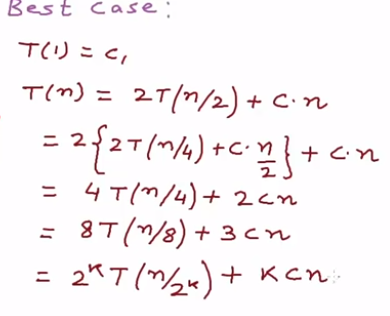 Best Case:
T(1) = c₁
T(n) = 2T(n/2) + c·n
= 2{2T(n/4) + c·n/2} + c·n
= 4T(n/4) + 2cn
= 8T(n/8) + 3cn
= 2ᵏT(n/2ᵏ) + Kcn